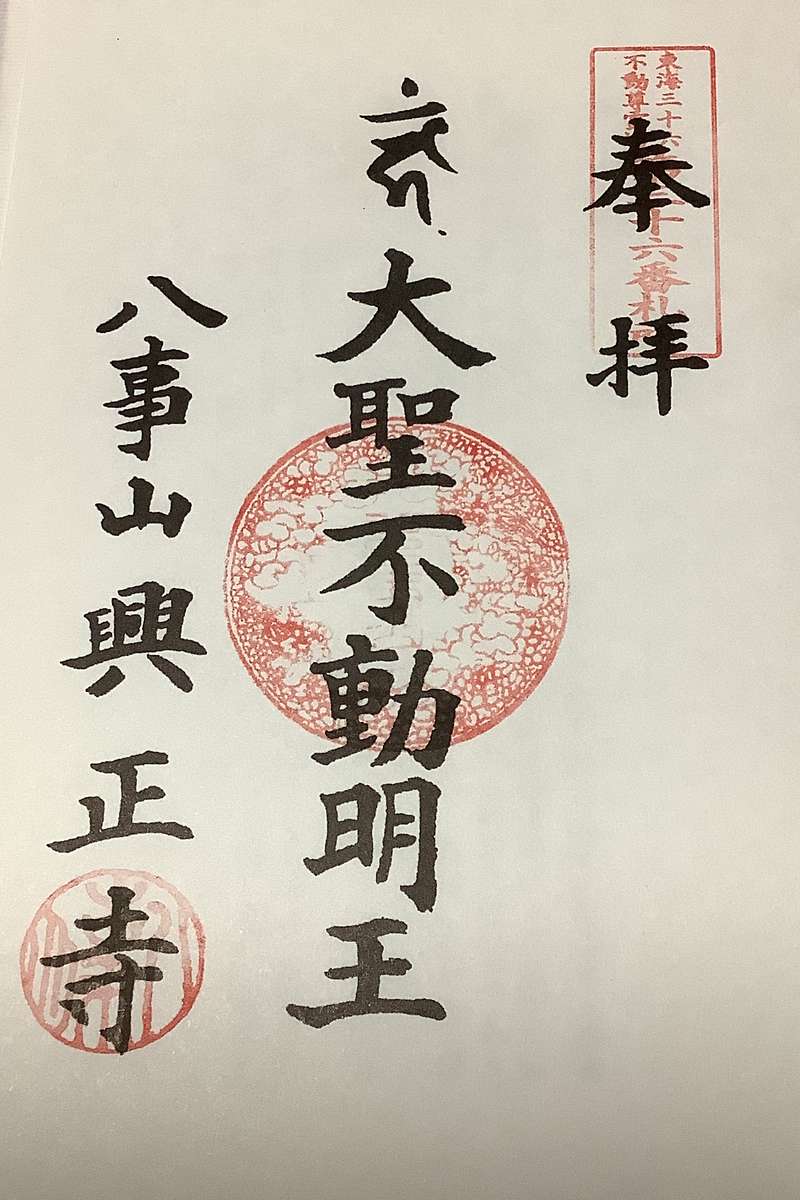 東海三十六
不動尊
十六番札
奉拝
大聖不動明王
八事山興正寺